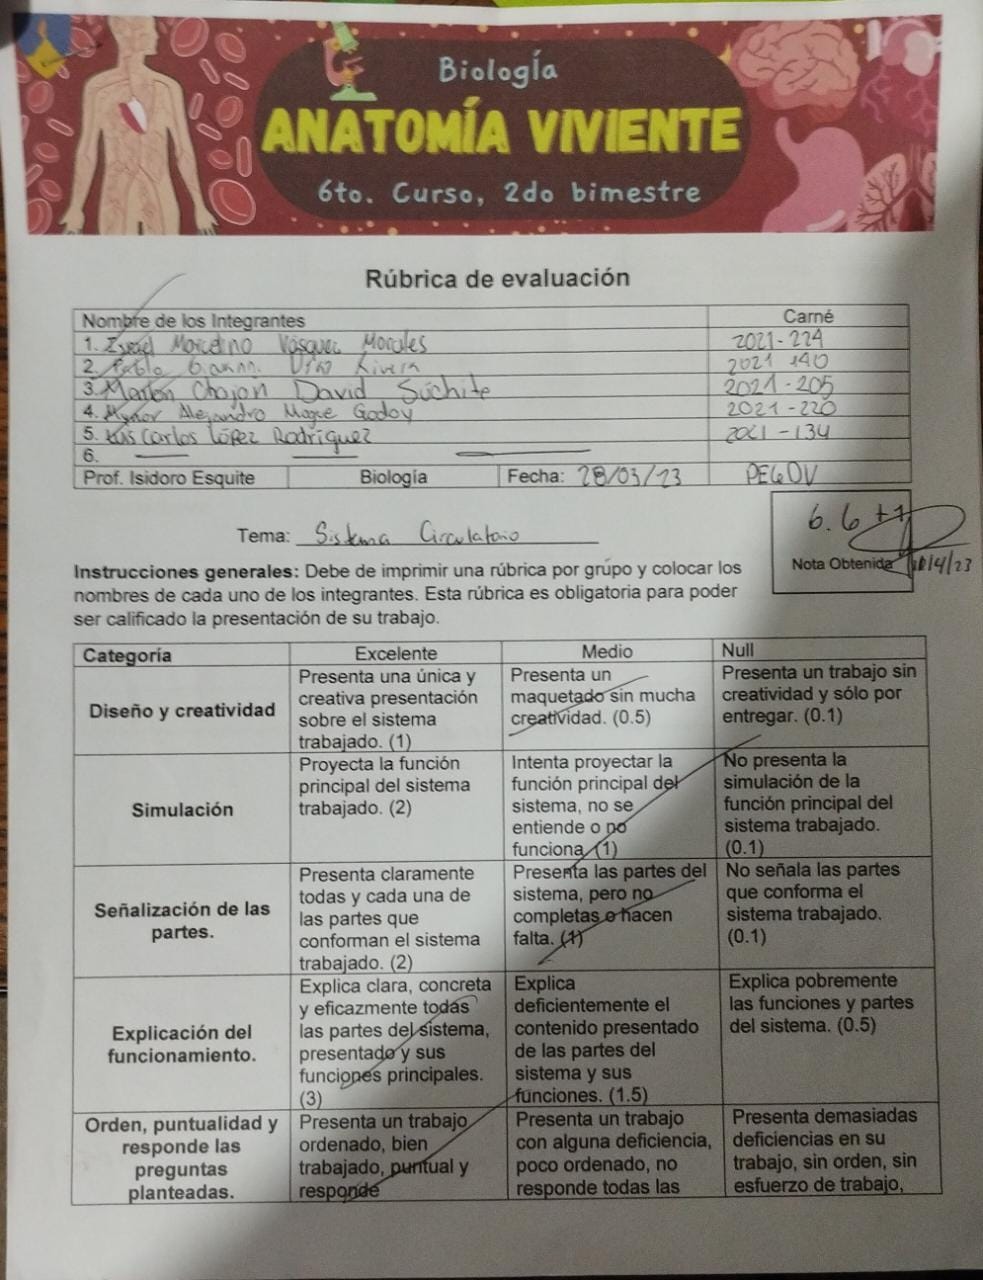 Biología
ANATOMÍA VIVIENTE
6to. Curso, 2do bimestre
Rúbrica de evaluación
Nombre de los Integrantes Carné
1. Marcelino Vásquez Morales 2021-224
2. Pablo Rivera 2021 140
3. Marlon Chajon David Súchite 2021-205
4. Mynor Alejandro Moque Godoy 2021-220
5. Luis Carlos López Rodríguez 2021-134
6.
Prof. Isidoro Esquite Biología Fecha: 28/03/23 PEGOV
6.6 +1
Tema: Sistema Circulatorio
Nota Obtenida /4/23
Instrucciones generales: Debe de imprimir una rúbrica por grupo y colocar los
nombres de cada uno de los integrantes. Esta rúbrica es obligatoria para poder
ser calificado la presentación de su trabajo.
Categoría Excelente Medio Null
Diseño y creatividad
Presenta una única y
creativa presentación
sobre el sistema
trabajado. (1)
Presenta un
maquetado sin mucha
creatividad. (0.5)
Presenta un trabajo sin
creatividad y sólo por
entregar. (0.1)
Simulación
Proyecta la función
principal del sistema
trabajado. (2)
Intenta proyectar la
función principal del
sistema, no se
entiende o no
funciona. (1)
No presenta la
simulación de la
función principal del
sistema trabajado.
(0.1)
Señalización de las
partes.
Presenta claramente
todas y cada una de
las partes que
conforman el sistema
trabajado. (2)
Presenta las partes del
sistema, pero no
completas o hacen
falta. (1)
No señala las partes
que conforma el
sistema trabajado.
(0.1)
Explicación del
funcionamiento.
Explica clara, concreta
y eficazmente todas
las partes del sistema,
presentado y sus
funciones principales.
(3)
Explica
deficientemente el
contenido presentado
de las partes del
sistema y sus
funciones. (1.5)
Explica pobremente
las funciones y partes
del sistema. (0.5)
Orden, puntualidad y
responde las
preguntas
planteadas.
Presenta un trabajo
ordenado, bien
trabajado, puntual y
responde
Presenta un trabajo
con alguna deficiencia,
poco ordenado, no
responde todas las
Presenta demasiadas
deficiencias en su
trabajo, sin orden, sin
esfuerzo de trabajo,